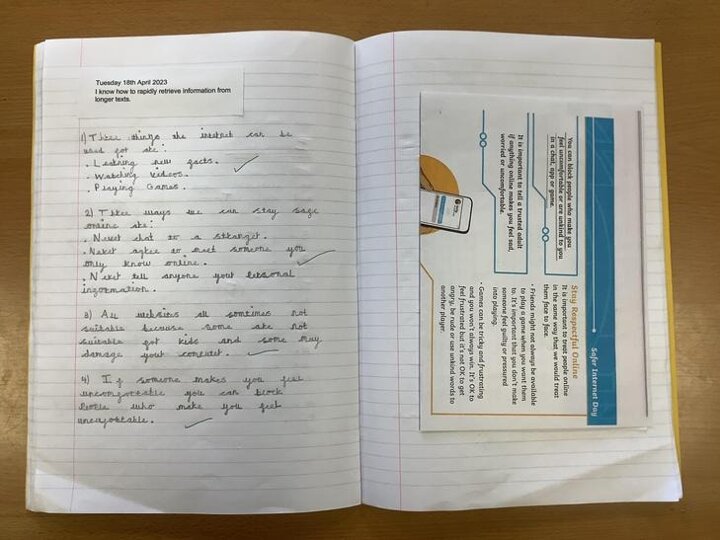 Tuesday 18th April 2023
I know how to rapidly retrieve information from
longer texts.
1) Three things the internet can be
used for are:
. Learning new facts.
. Watching videos.
. Playing Games.
2) Three ways we can stay safe
online are:
. Never chat to a stranger.
. Never agree to meet someone you
only know online.
. Never tell anyone your personal
information.
3) All websites all somtimes not
suitable because some are not
suitable for kids and some may
damage your
4) If someone makes you feel
uncomfortable you can block
People who make you feel
Safer Internet Day
You can block people who make you
feel uncomfortable or are unkind to you
in a chat, app or game.
It is important to tell a trusted adult
if anything online makes you feel sad,
worried or uncomfortable.
Stay Respectful Online
It is important to treat people online
in the same way that we would treat
them face to face.
• Friends might not always be available
to play a game when you want them
to. It's important that you don't make
someone feel guilty or pressured
into playing.
• Games can be tricky and frustrating
and you won't always win. It's OK to
feel frustrated but it's not OK to get
angry, be rude or use unkind words to
another player.